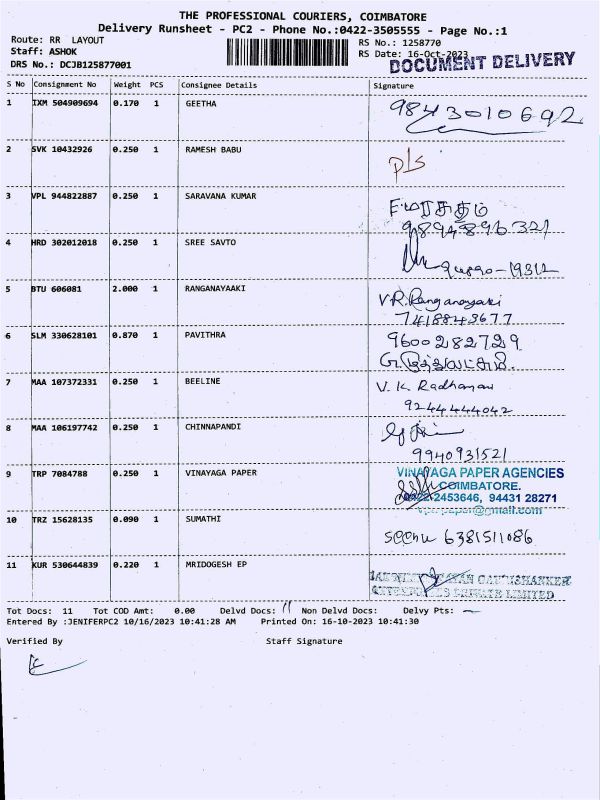 THE PROFESSIONAL COURIERS, COIMBATORE
Delivery Runsheet - PC2 - Phone No.:0422-3505555 - Page No.:1
Route: RR LAYOUT
RS No.: 1258770
Staff: ASHOK
RS Date: 16-Oct-2023
DRS No.: DCJB125877001
DOCUMENT DELIVERY
S No Consignment No Weight PCS Consignee Details Signature
1 IXM 504909694 0.170 1 GEETHA 9843010692
2 SVK 10432926 0.250 1 RAMESH BABU
3 VPL 944822887 0.250 1 SARAVANA KUMAR
9894896321
4 HRD 302012018 0.250 1 SREE SAVTO
5 BTU 606081 2.000 1 RANGANAYAAKI V.R. Ranganayaki
7418843677
6 SLM 330628101 0.870 1 PAVITHRA 9600282729
7 MAA 107372331 0.250 1 BEELINE V. K Radhamani
9244444042
8 MAA 106197742 0.250 1 CHINNAPANDI
9940931521
9 TRP 7084788 0.250 1 VINAYAGA PAPER VINAYAGA PAPER AGENCIES
COIMBATORE.
0422-2453646, 94431 28271
10 TRZ 15628135 0.090 1 SUMATHI
seenu 6381511086
11 KUR 530644839 0.220 1 MRIDOGESH EP
PRIVATE LIMITED
Tot Docs: 11 Tot COD Amt: 0.00 Delvd Docs: 11 Non Delvd Docs: Delvy Pts: —
Entered By :JENIFERPC2 10/16/2023 10:41:28 AM Printed On: 16-10-2023 10:41:30
Verified By Staff Signature